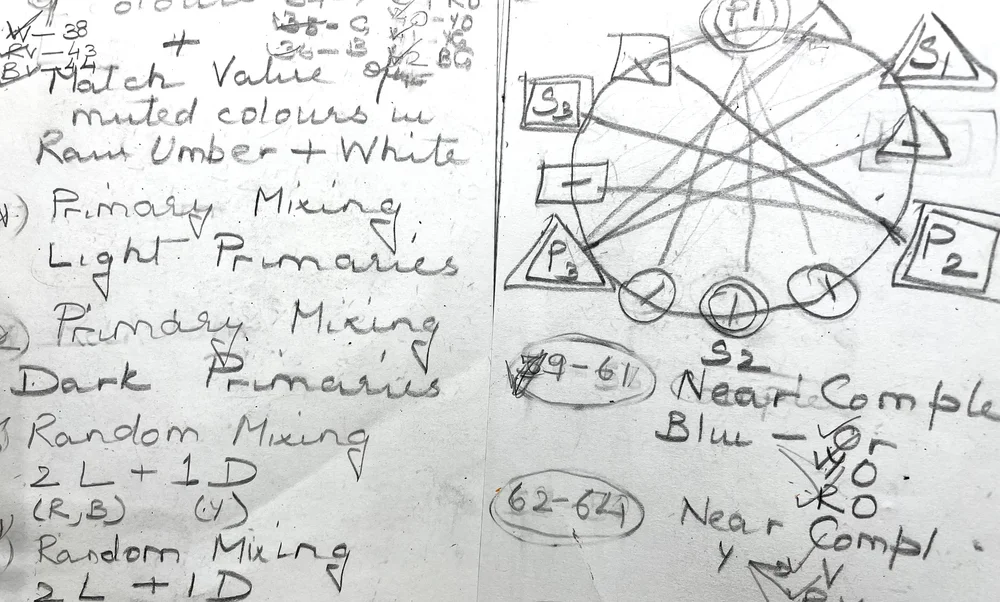 V — 38
RV — 43
BV — 44
+
Match Value of
muted colours in
Raw Umber + White
Primary Mixing
Light Primaries
Primary Mixing
Dark Primaries
Random Mixing
2 L + 1 D
(R, B) (Y)
Random Mixing
2 L + 1 D
P1
S1
S3
P3
P2
S2
59-61
Near Comple
Blue — Or
YO
RO
62-64
Near Compl
Y V